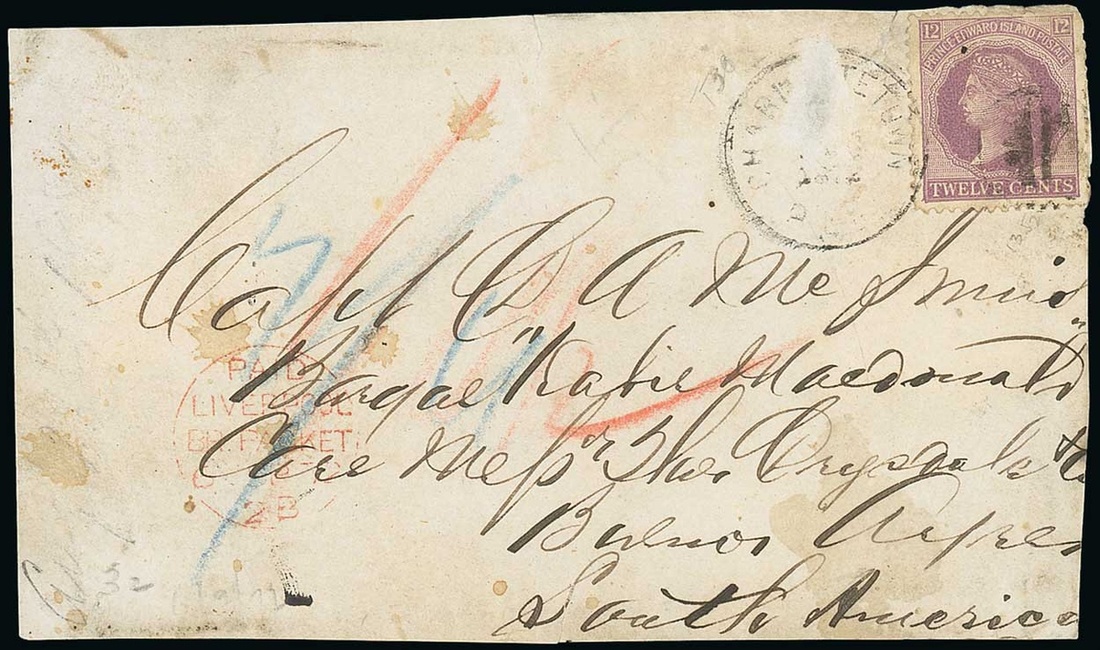 12 12
PRINCE EDWARD ISLAND POSTAGE
TWELVE CENTS
CHARLOTTETOWN
Capt C A Mc
Barque "Katie Macdonald"
Care Messrs Thos Drysdale & Co
Buenos Ayres
South America
PAID
LIVERPOOL
BR. PACKET
2B
32